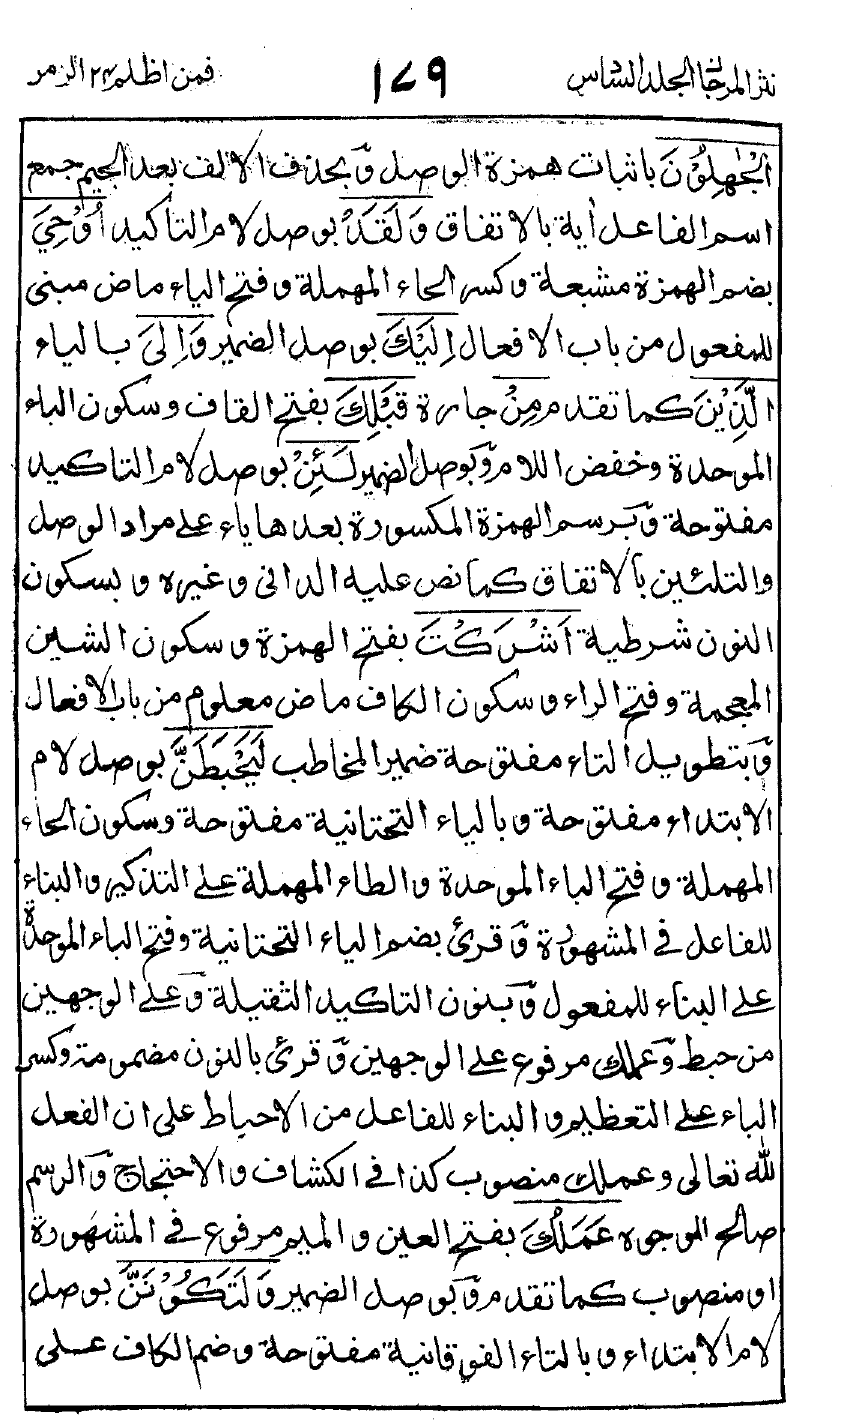 نثر المرجان الجلد السادس ١٧٩ فمن اظلم ٢٤ الزمر
الْجٰهِلُوْنَ باثبات همزة الوصل وبحذف الالف بعد الجيم جمع
اسم الفاعل اية بالاتفاق وَلَقَدْ بوصل لام التأكيد اُوْحِيَ
بضم الهمزة مشبعة وكسر الحاء المهملة وفتح الياء ماض مبنى
للمفعول من باب الافعال اِلَيْكَ بوصل الضمير وَاِلَى بالياء
الَّذِيْنَ كما تقدم مِنْ جارة قَبْلِكَ بفتح القاف وسكون الباء
الموحدة وخفض اللام وبوصل الضمير لَئِنْ بوصل لام التاكيد
مفتوحة وبرسم الهمزة المكسورة بعدها ياء على مراد الوصل
والتلئين بالاتفاق كما نص عليه الدانى وغيره وبسكون
النون شرطية اَشْرَكْتَ بفتح الهمزة وسكون الشين
المعجمة وفتح الراء وسكون الكاف ماض معلوم من باب الافعال
وبتطويل التاء مفتوحة ضمير المخاطب لَيَحْبَطَنَّ بوصل لام
الابتداء مفتوحة وبالياء التحتانية مفتوحة وسكون الحاء
المهملة وفتح الباء الموحدة والطاء المهملة على التذكير والبناء
للفاعل فى المشهورة وقرئ بضم الياء التحتانية وفتح الباء الموحدة
على البناء للمفعول وبنون التاكيد الثقيلة وعلى الوجهين
من حبط وعملك مرفوع على الوجهين وقرئ بالنون مضمومة وكسر
الباء على التعظيم والبناء للفاعل من الاحباط على ان الفعل
لله تعالى وعملك منصوب كذا فى الكشاف والاحتجاج والرسم
صالح الوجوه عَمَلُكَ بفتح العين والميم مرفوع فى المشهورة
او منصوب كما تقدم وبوصل الضمير وَلَتَكُوْنَنَّ بوصل
لام الابتداء وبالتاء الفوقانية مفتوحة وضم الكاف على